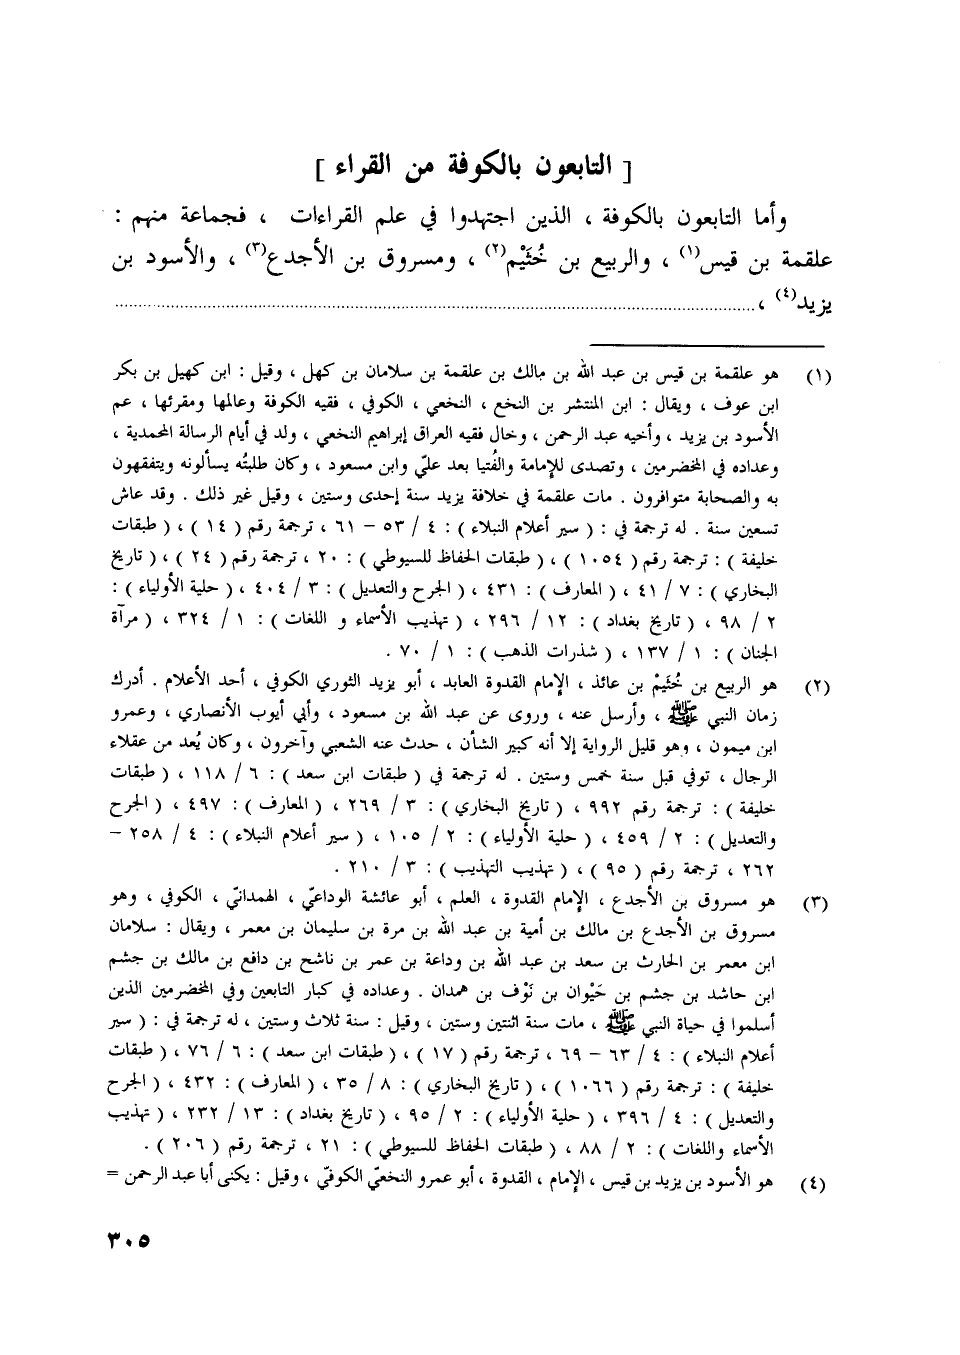 [ التابعون بالكوفة من القراء ]
وأما التابعون بالكوفة ، الذين اجتهدوا في علم القراءات ، فجماعة منهم :
علقمة بن قيس(١) ، والربيع بن خُثَيْم(٢) ، ومسروق بن الأجدع(٣) ، والأسود بن
يزيد(٤) ، ........................................
(١) هو علقمة بن قيس بن عبد الله بن مالك بن علقمة بن سلامان بن كهل ، وقيل : ابن كهيل بن بكر
ابن عوف ، ويقال : ابن المنتشر بن النخع ، النخعي ، الكوفي ، فقيه الكوفة وعالمها ومقرئها ، عم
الأسود بن يزيد ، وأخيه عبد الرحمن ، وخال فقيه العراق إبراهيم النخعي ، ولد في أيام الرسالة المحمدية ،
وعداده في المخضرمين ، وتصدى للإمامة والفُتيا بعد عليّ وابن مسعود ، وكان طلبتُه يسألونه ويتفقهون
به والصحابة متوافرون . مات علقمة في خلافة يزيد سنة إحدى وستين ، وقيل غير ذلك . وقد عاش
تسعين سنة . له ترجمة في : ( سير أعلام النبلاء ) : ٤ / ٥٣ – ٦١ ، ترجمة رقم ( ١٤ ) ، ( طبقات
خليفة ) : ترجمة رقم ( ١٠٥٤ ) ، ( طبقات الحفاظ للسيوطي ) : ٢٠ ، ترجمة رقم ( ٢٤ ) ، ( تاريخ
البخاري ) : ٧ / ٤١ ، ( المعارف ) : ٤٣١ ، ( الجرح والتعديل ) : ٣ / ٤٠٤ ، ( حلية الأولياء ) :
٢ / ٩٨ ، ( تاريخ بغداد ) : ١٢ / ٢٩٦ ، ( تهذيب الأسماء و اللغات ) : ١ / ٣٢٤ ، ( مرآة
الجنان ) : ١ / ١٣٧ ، ( شذرات الذهب ) : ١ / ٧٠ .
(٢) هو الربيع بن خُثَيمْ بن عائذ ، الإمام القدوة العابد ، أبو يزيد الثوري الكوفي ، أحد الأعلام . أدرك
زمان النبي ﷺ ، وأرسل عنه ، وروى عن عبد الله بن مسعود ، وأبي أيوب الأنصاري ، وعمرو
ابن ميمون ، وهو قليل الرواية إلا أنه كبير الشأن ، حدث عنه الشعبي وآخرون ، وكان يُعد من عقلاء
الرجال ، توفي قبل سنة خمس وستين . له ترجمة في ( طبقات ابن سعد ) : ٦ / ١١٨ ، ( طبقات
خليفة ) : ترجمة رقم ٩٩٢ ، ( تاريخ البخاري ) : ٣ / ٢٦٩ ، ( المعارف ) : ٤٩٧ ، ( الجرح
والتعديل ) : ٢ / ٤٥٩ ، ( حلية الأولياء ) : ٢ / ١٠٥ ، ( سير أعلام النبلاء ) : ٤ / ٢٥٨ –
٢٦٢ ، ترجمة رقم ( ٩٥ ) ، ( تهذيب التهذيب ) : ٣ / ٢١٠ .
(٣) هو مسروق بن الأجدع ، الإمام القدوة ، العلم ، أبو عائشة الوداعيّ ، الهمدانيّ ، الكوفي ، وهو
مسروق بن الأجدع بن مالك بن أمية بن عبد الله بن مرة بن سليمان بن معمر ، ويقال : سلامان
ابن معمر بن الحارث بن سعد بن عبد الله بن وداعة بن عمر بن ناشح بن دافع بن مالك بن جشم
ابن حاشد بن جشم بن حَيْوان بن نَوْف بن همدان . وعداده في كبار التابعين وفي المخضرمين الذين
أسلموا في حياة النبي ﷺ ، مات سنة اثنتين وستين ، وقيل : سنة ثلاث وستين ، له ترجمة في : ( سير
أعلام النبلاء ) : ٤ / ٦٣ – ٦٩ ، ترجمة رقم ( ١٧ ) ، ( طبقات ابن سعد ) : ٦ / ٧٦ ، ( طبقات
خليفة ) : ترجمة رقم ( ١٠٦٦ ) ، ( تاريخ البخاري ) : ٨ / ٣٥ ، ( المعارف ) : ٤٣٢ ، ( الجرح
والتعديل ) : ٤ / ٣٩٦ ، ( حلية الأولياء ) : ٢ / ٩٥ ، ( تاريخ بغداد ) : ١٣ / ٢٣٢ ، ( تهذيب
الأسماء واللغات ) : ٢ / ٨٨ ، ( طبقات الحفاظ للسيوطي ) : ٢١ ، ترجمة رقم ( ٢٠٦ ) .
(٤) هو الأسود بن يزيد بن قيس ، الإمام ، القدوة ، أبو عمرو النخعيّ الكوفيّ ، وقيل : يكنى أبا عبد الرحمن =
٣٠٥